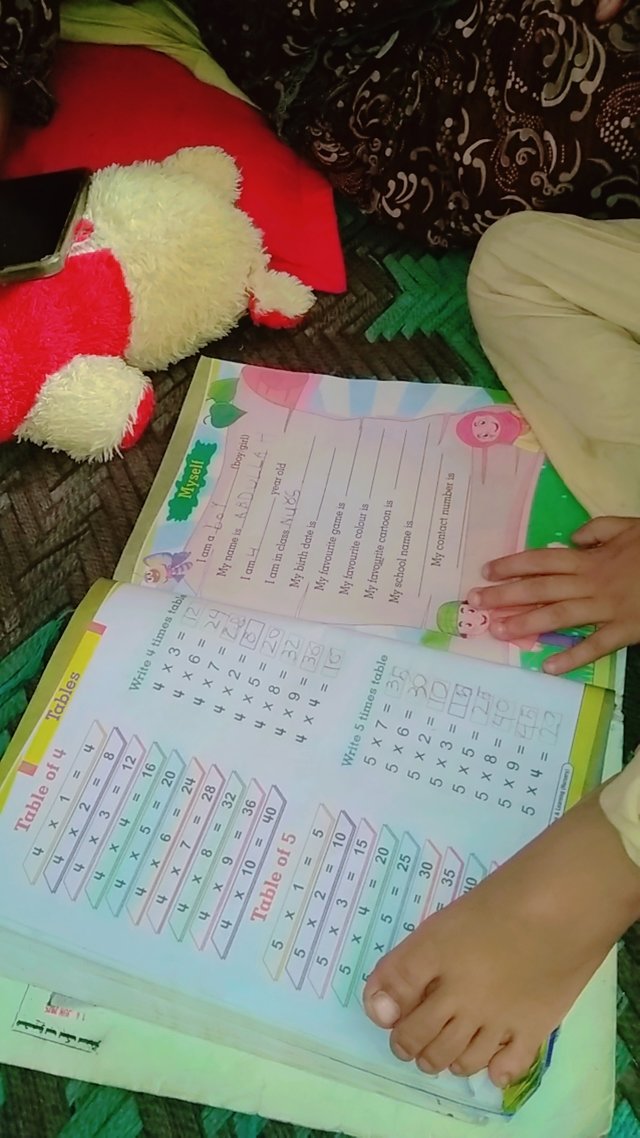 Tables
Table of 4
4 x 1 = 4
4 x 2 = 8
4 x 3 = 12
4 x 4 = 16
4 x 5 = 20
4 x 6 = 24
4 x 7 = 28
4 x 8 = 32
4 x 9 = 36
4 x 10 = 40
Table of 5
5 x 1 = 5
5 x 2 = 10
5 x 3 = 15
5 x 4 = 20
5 x 5 = 25
6 = 30
= 35
40
Write 4 times table
4 x 3 = 12
4 x 6 = 24
4 x 7 = 28
4 x 2 = 8
4 x 5 = 20
4 x 8 = 32
4 x 9 = 36
4 x 4 = 16
Write 5 times table
5 x 7 = 35
5 x 6 = 30
5 x 2 = 10
5 x 3 = 15
5 x 5 = 25
5 x 8 = 40
5 x 9 = 45
5 x 4 = 20
& Learning (Nursery)
Myself
I am a boy (boy/girl)
My name is ABDULLAH
I am 4 year old
I am in class
My birth date is
My favourite game is
My favourite colour is
My favourite cartoon is
My school name is
My contact number is